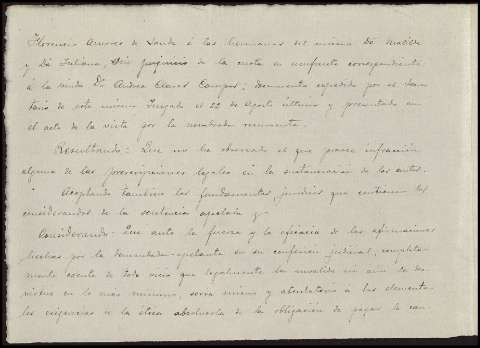 Florencio Amores de Landa á las hermanas del mismo Dª Matilde
y Dª Juliana, sin perjuicio de la cuota en usufructo correspondiente
á la viuda Dª Andrea Claver Campos; documento expedido por el Secre
tario de este mismo Juzgado el 22 de Agosto último y presentado en
el acto de la vista por la nombrada recurrente.
Resultando: Que no ha observado el que provee infracción
alguna de las prescripciones legales en la sustanciación de los autos.
Aceptando tambien los fundamentos jurídicos que contienen los
considerandos de la sentencia apelada y
Considerando: Que ante la fuerza y la eficacia de las afirmaciones
hechas por la demandada-apelante en su confesión judicial, completa-
mente exenta de todo vicio que legalmente la invalide ni aún la des-
virtue en lo mas minimo, seria inicuo y atentatorio á las elementa-
les exigencias de la ética absolverla de la obligación de pagar la can-